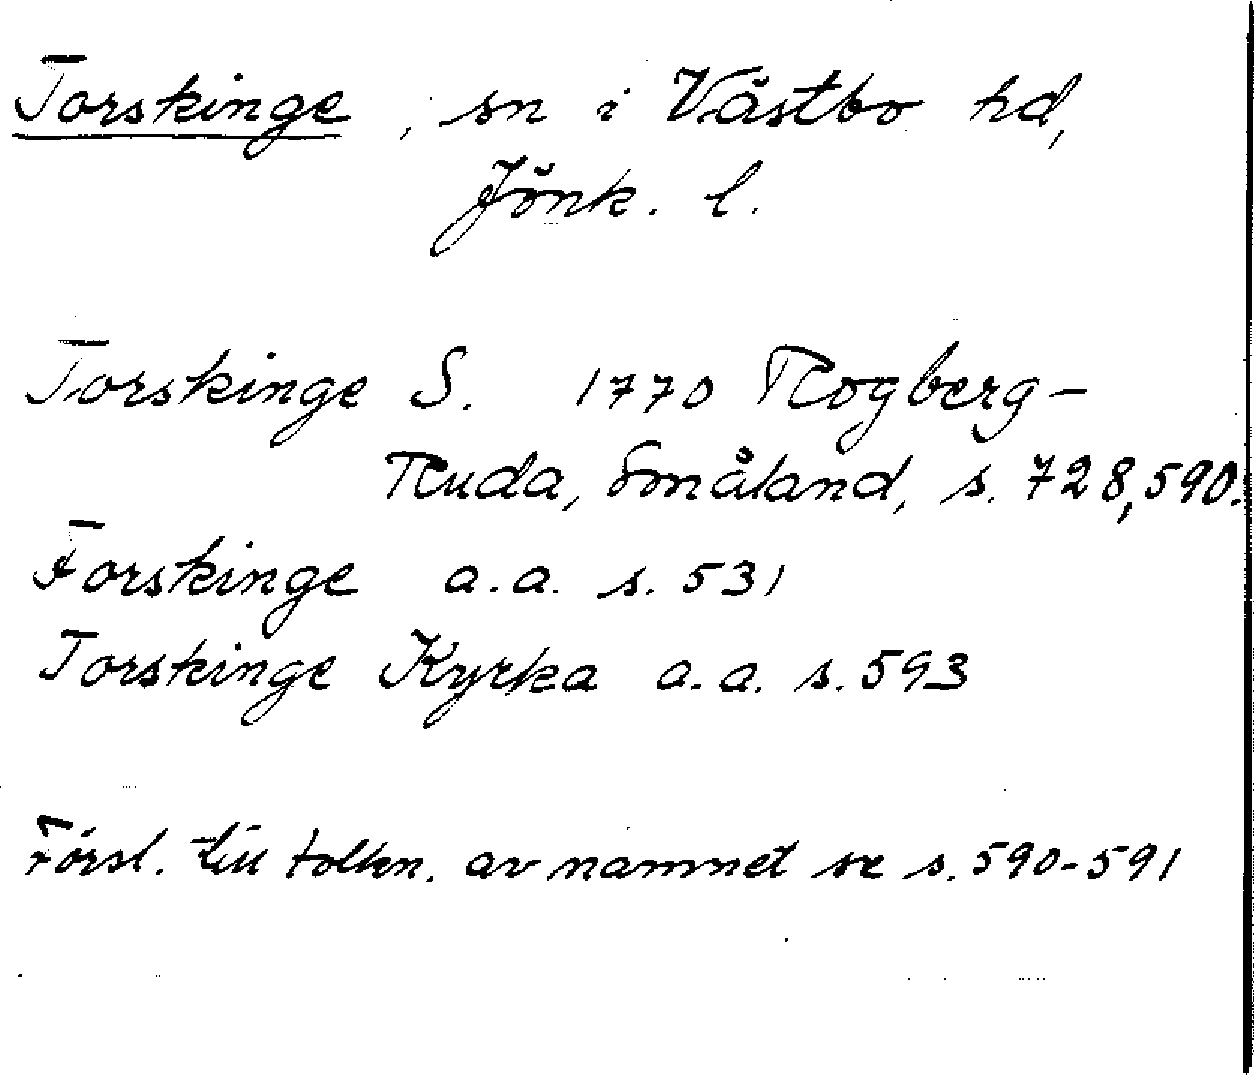 Torskinge, sn i Västbo hd,
Jönk. l.
Torskinge S. 1770 Rogberg-
Ruda, Småland, s. 728,590.
Forskinge a.a. s. 531
Torskinge Kyrka a.a. s. 593
Försl. till tolkn. av namnet se s. 590-591